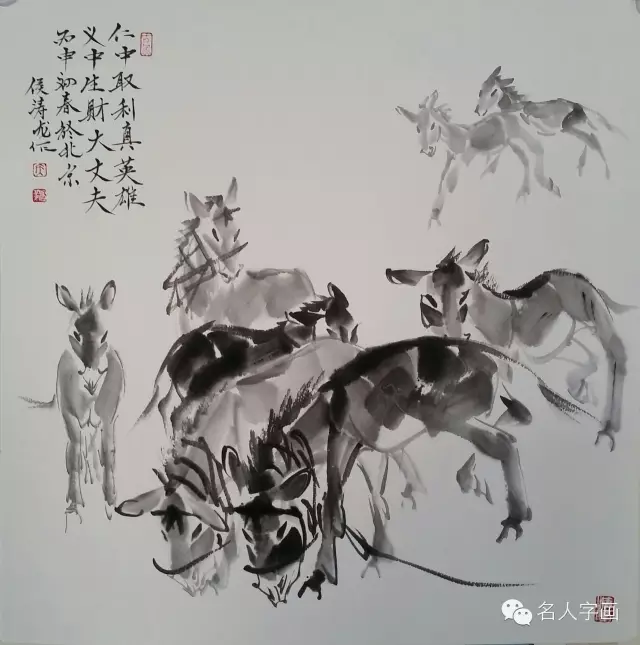 仁中取利真英雄
义中生財大丈夫
丙申初春於北京
侯涛
名人字画